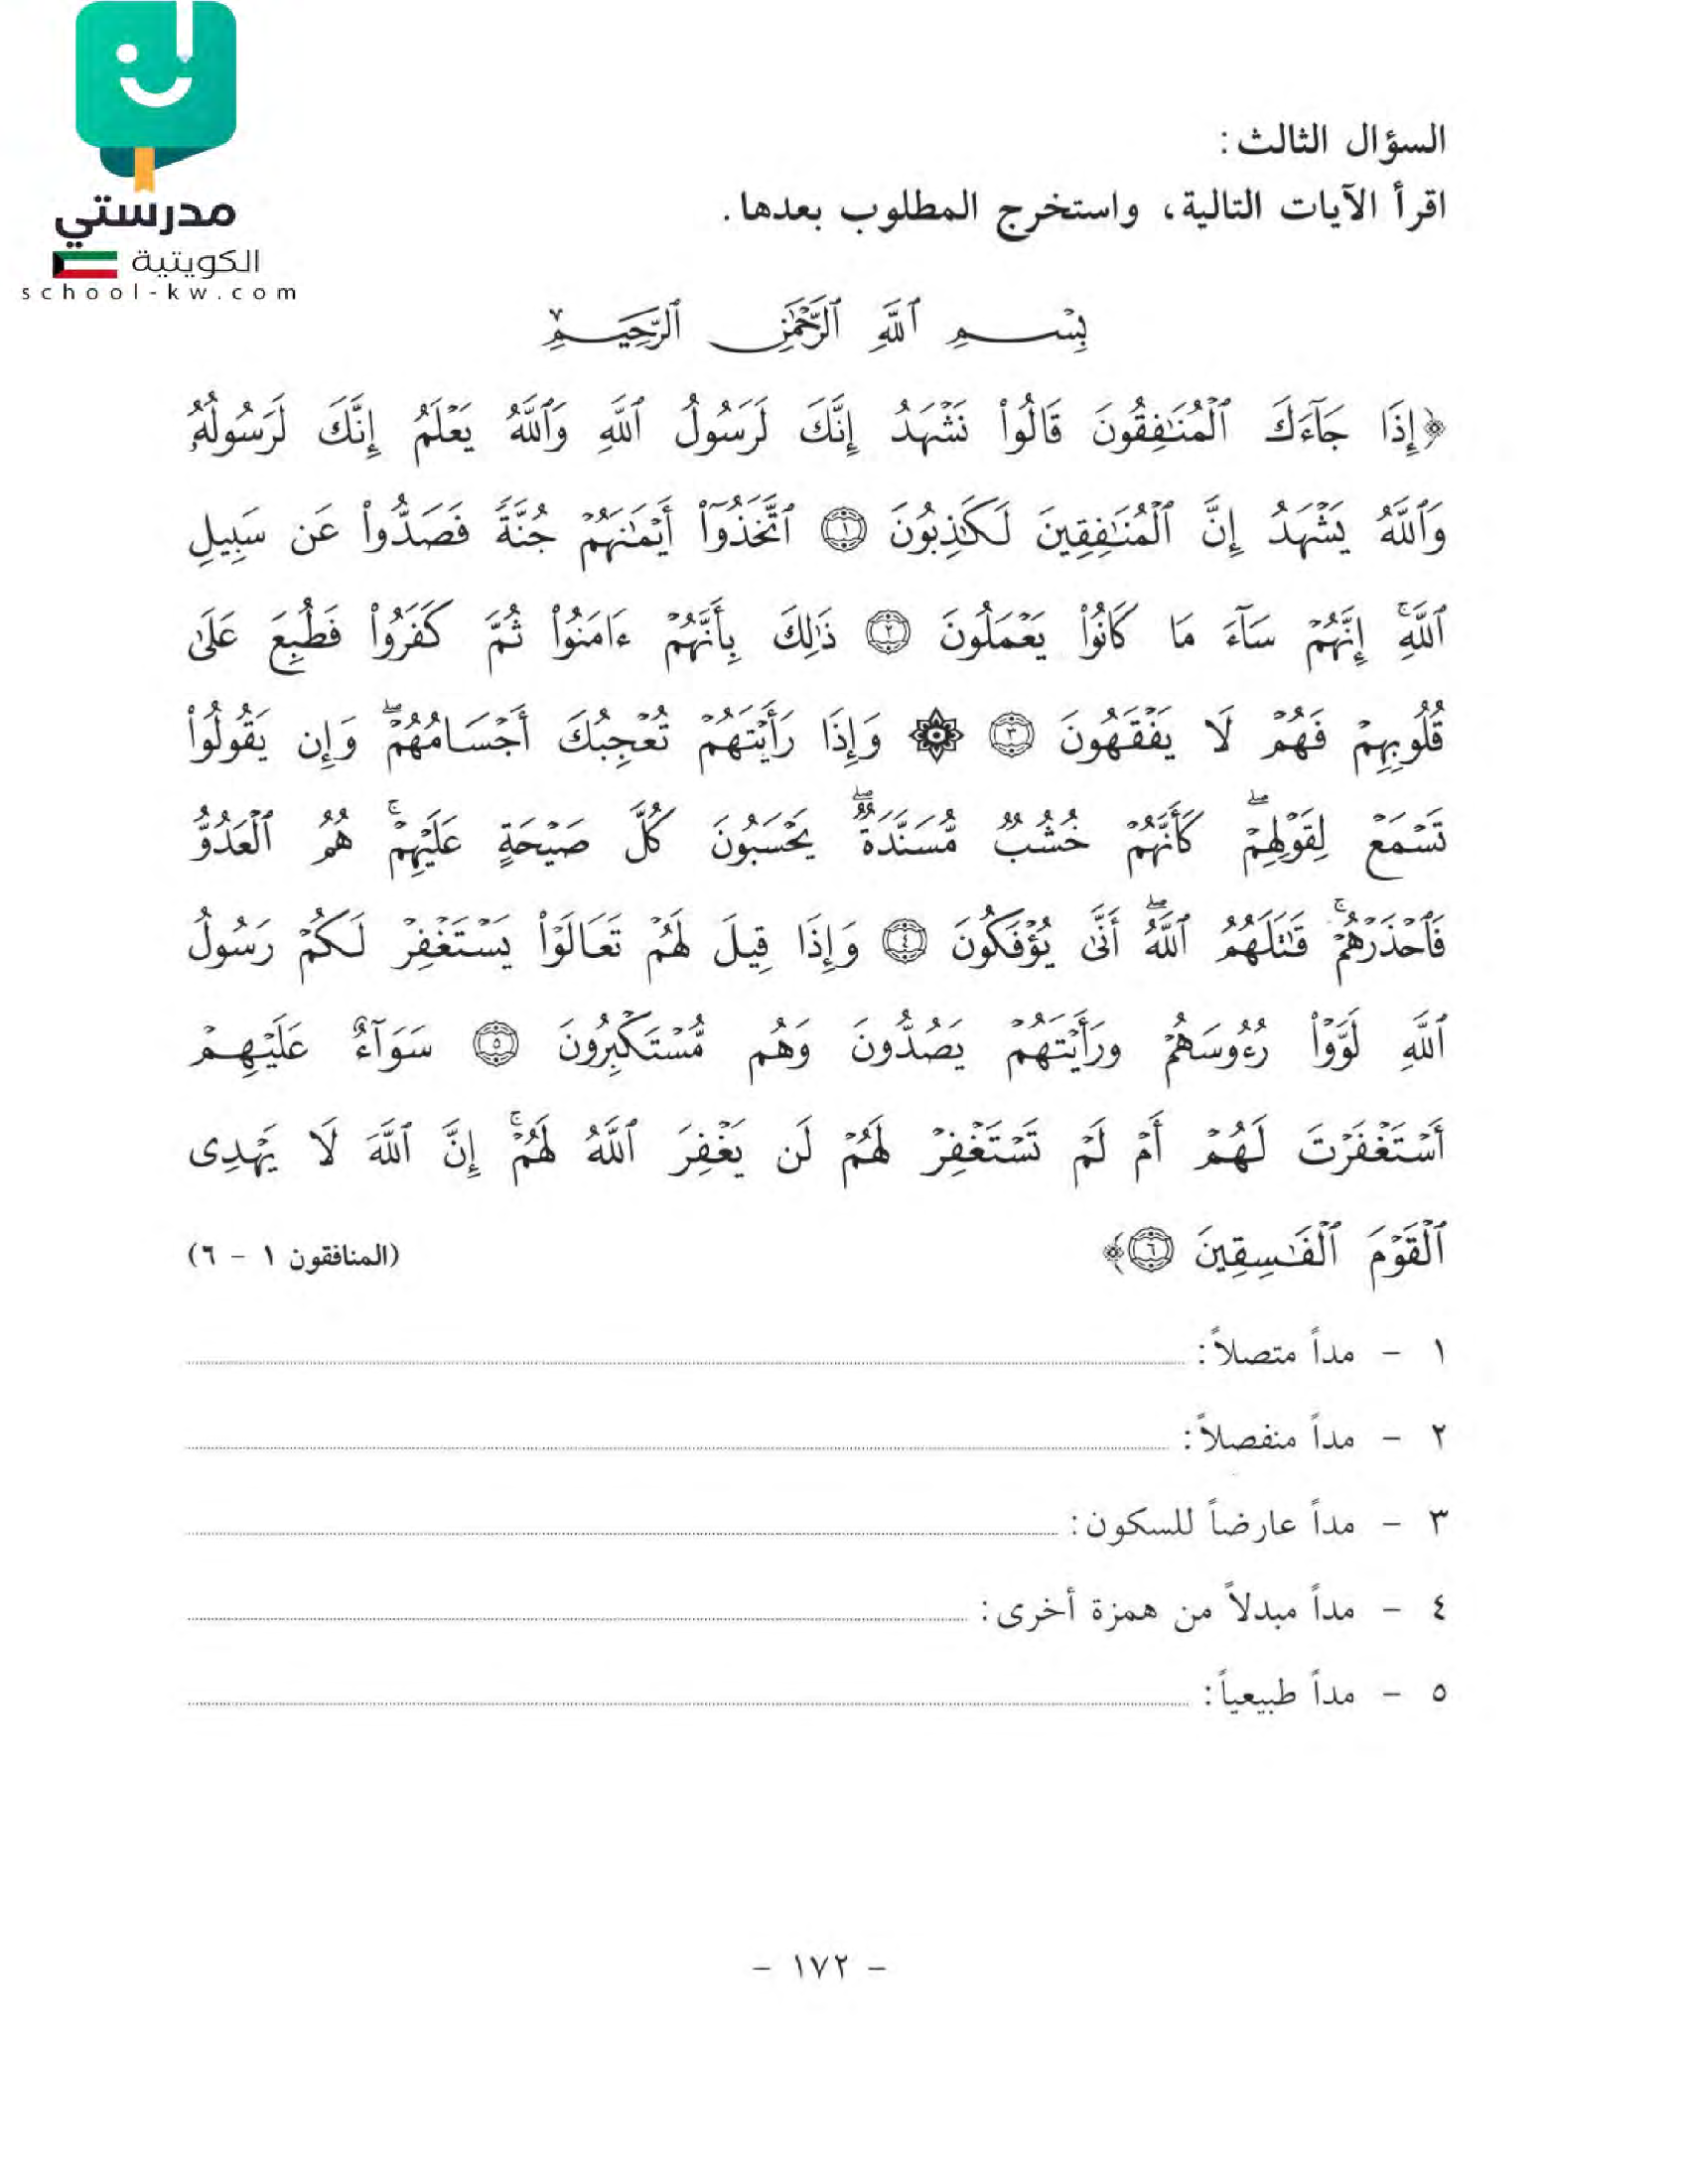 مدرستي
الكويتية
school-kw.com
السؤال الثالث:
اقرأ الآيات التالية، واستخرج المطلوب بعدها.
بِسْمِ ٱللَّهِ ٱلرَّحْمَٰنِ ٱلرَّحِيمِ
﴿إِذَا جَآءَكَ ٱلْمُنَٰفِقُونَ قَالُوا۟ نَشْهَدُ إِنَّكَ لَرَسُولُ ٱللَّهِ وَٱللَّهُ يَعْلَمُ إِنَّكَ لَرَسُولُهُۥ
وَٱللَّهُ يَشْهَدُ إِنَّ ٱلْمُنَٰفِقِينَ لَكَٰذِبُونَ ١ ٱتَّخَذُوٓا۟ أَيْمَٰنَهُمْ جُنَّةً فَصَدُّوا۟ عَن سَبِيلِ
ٱللَّهِۚ إِنَّهُمْ سَآءَ مَا كَانُوا۟ يَعْمَلُونَ ٢ ذَٰلِكَ بِأَنَّهُمْ ءَامَنُوا۟ ثُمَّ كَفَرُوا۟ فَطُبِعَ عَلَىٰ
قُلُوبِهِمْ فَهُمْ لَا يَفْقَهُونَ ٣ ۞ وَإِذَا رَأَيْتَهُمْ تُعْجِبُكَ أَجْسَامُهُمْۖ وَإِن يَقُولُوا۟
تَسْمَعْ لِقَوْلِهِمْۖ كَأَنَّهُمْ خُشُبٌ مُّسَنَّدَةٌۖ يَحْسَبُونَ كُلَّ صَيْحَةٍ عَلَيْهِمْۚ هُمُ ٱلْعَدُوُّ
فَٱحْذَرْهُمْۚ قَٰتَلَهُمُ ٱللَّهُۖ أَنَّىٰ يُؤْفَكُونَ ٤ وَإِذَا قِيلَ لَهُمْ تَعَالَوْا۟ يَسْتَغْفِرْ لَكُمْ رَسُولُ
ٱللَّهِ لَوَّوْا۟ رُءُوسَهُمْ ورَأَيْتَهُمْ يَصُدُّونَ وَهُم مُّسْتَكْبِرُونَ ٥ سَوَآءٌ عَلَيْهِمْ
أَسْتَغْفَرْتَ لَهُمْ أَمْ لَمْ تَسْتَغْفِرْ لَهُمْ لَن يَغْفِرَ ٱللَّهُ لَهُمْۚ إِنَّ ٱللَّهَ لَا يَهْدِى
ٱلْقَوْمَ ٱلْفَٰسِقِينَ ٦﴾ (المنافقون ١ - ٦)
١ - مداً متصلاً:
٢ - مداً منفصلاً:
٣ - مداً عارضاً للسكون:
٤ - مداً مبدلاً من همزة أخرى:
٥ - مداً طبيعياً:
- ١٧٢ -